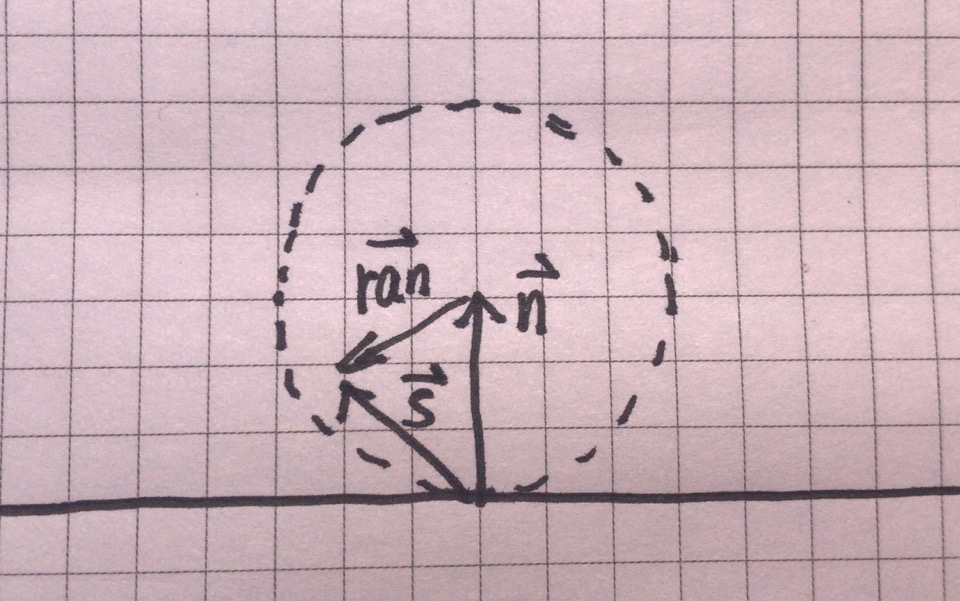 ran
n
s